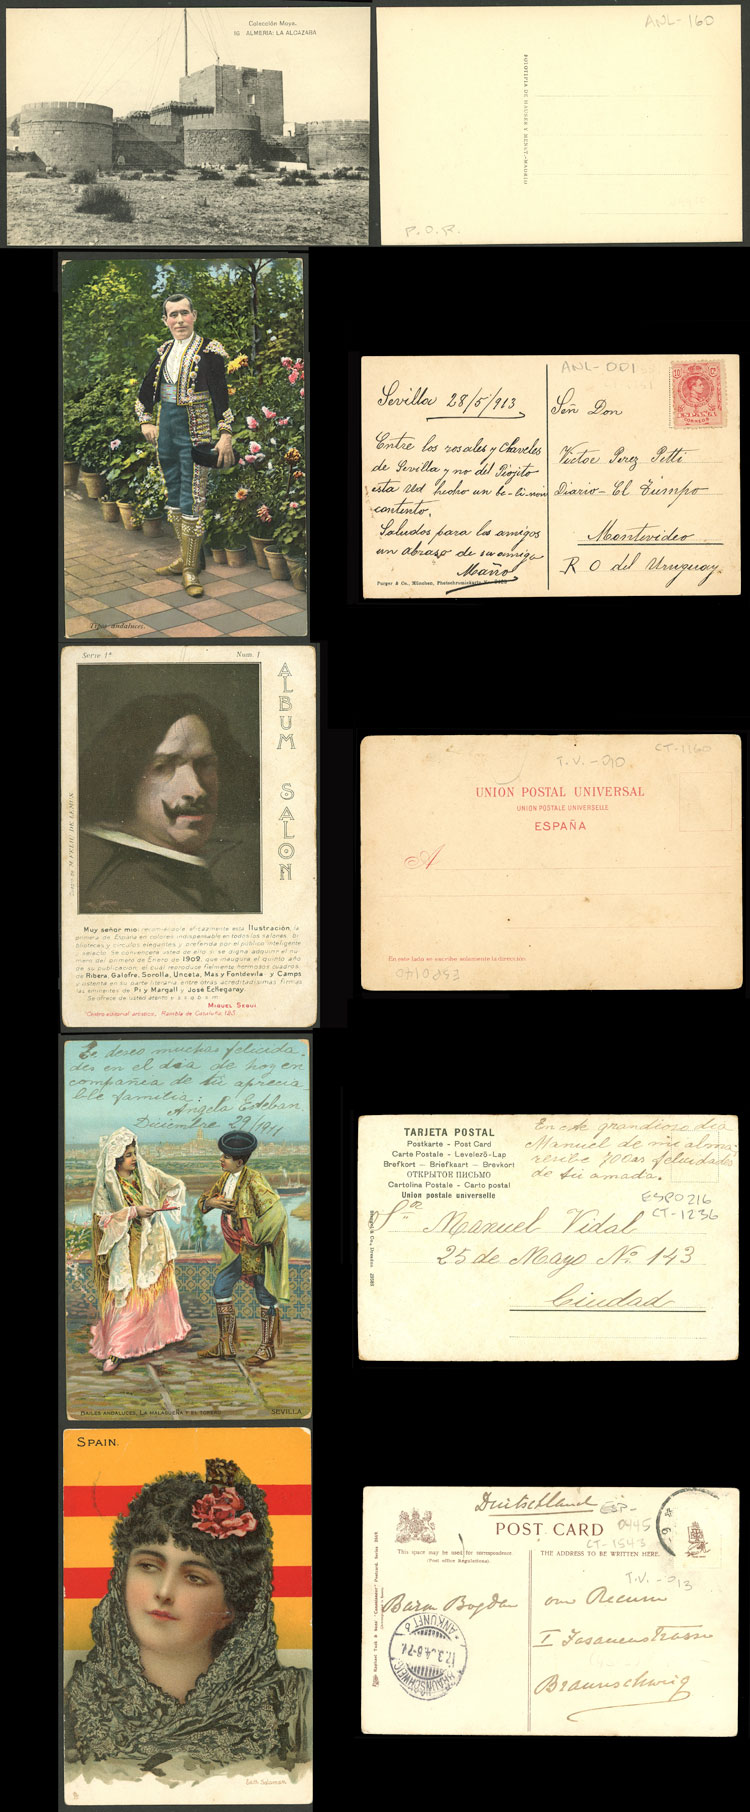 Colección Moya.
86 ALMERIA: LA ALCAZABA
ANL-160
FOTOTIPIA DE HAUSER Y MENET.-MADRID
P.O.R.
Tipos andaluces.
ANL-001
Sevilla 28/5/913
Entre los rosales y Claveles
de Sevilla y no del Piojito
esta Ud hecho un be-li-nín
contento.
Saludos para los amigos
un abraso de su amigo
Maño
Purger & Co., München, Photochromiekarte No.
10 Cs
CORREOS
Señ Don
Victor Perez Petti
Diario-El Tiempo
Montevideo
R O del Uruguay.
Serie 1ª Num. 1
ALBUM SALON
Muy señor mio: recomiéndole eficazmente esta Ilustración, la
primera de España en colores indispensable en todos los salones. Bi-
bliotecas y círculos elegantes y preferida por el público inteligente
y selecto. Se convencerá usted de ello si se digna adquirir el nú-
mero del primero de Enero de 1902, que inaugura el quinto año
de su publicación; el cual reproduce fielmente hermosos cuadros
de Ribera, Galofre, Sorolla, Unceta, Mas y Fontdevila y Camps
y ostenta en su parte literaria, entre otras acreditadísimas firmas
las eminentes de Pi y Margall y José Echegaray.
Se ofrece de usted atento y s s q b s m
MIGUEL SEGUI
Centro editorial artístico, Rambla de Cataluña, 125
CT-1160
T.V.-010
UNION POSTAL UNIVERSAL
UNION POSTALE UNIVERSELLE
ESPAÑA
A
En este lado se escribe solamente la dirección
ESP0140
Te deseo muchas felicida-
des en el día de hoy en
compañia de tu aprecia-
ble familia:
Angela Esteban.
Diciembre 29/1911
BAILES ANDALUCES, LA MALAGUEÑA Y EL TORERO SEVILLA
TARJETA POSTAL
Postkarte - Post Card
Carte Postale - Levelező-Lap
Brefkort - Briefkaart - Brevkort
ОТКРЫТОЕ ПИСЬМО
Cartolina Postale - Carto postal
Union postale universelle
En este grandioso dia
Manuel de mi alma,
recibe 700as felicidades
de tu amada.
ESP0216
CT-1236
Sor
Manuel Vidal
25 de Mayo No. 143
Ciudad
SPAIN.
Deutschland
ESP-
0445
CT-1543
POST CARD
This space may be used for correspondence.
(Post office Regulations)
THE ADDRESS TO BE WRITTEN HERE.
T.V.-013
Baron Bogdan
von Recum
I Fasanenstrasse
Braunschweig
BRAUNSCHWEIG
ANKUNFT